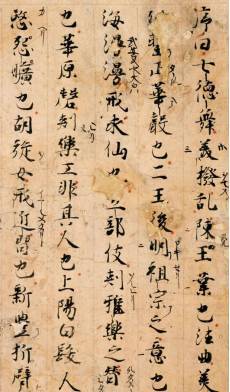 序曰七德舞美撥乱陳王業也法曲美
列聖正華聲也二王後明祖宗之意也
海漫漫戒求仙也立部伎刺雅樂之替
也華原磬刺樂工非其人也上陽白髮人
愍怨曠也胡旋女戒近習也新豊折臂